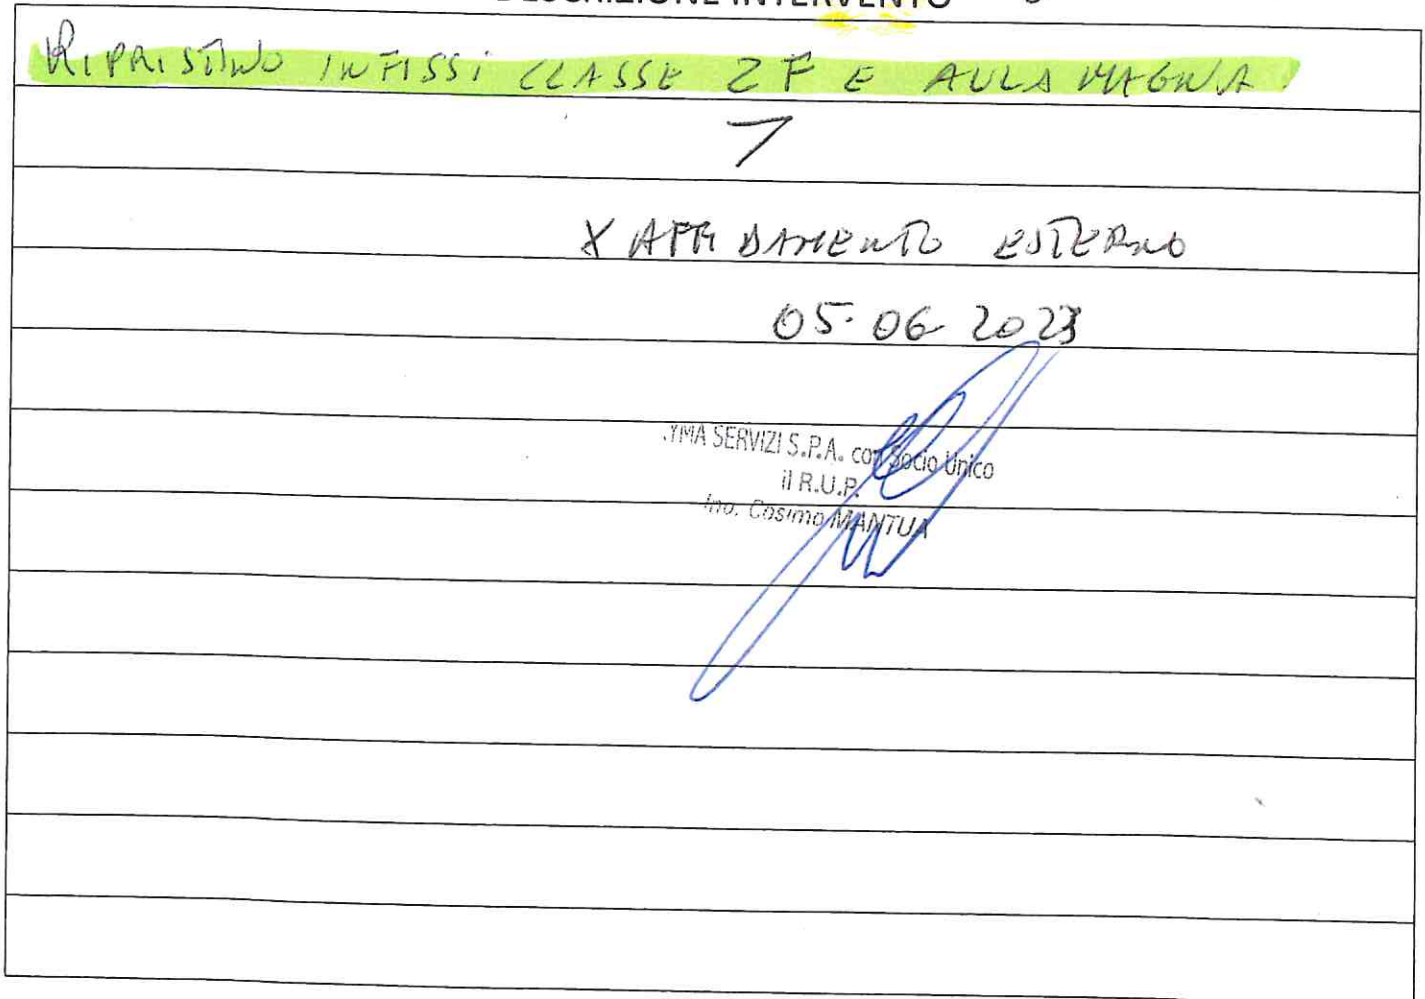 DESCRIZIONE INTERVENTO
RIPRISTINO INFISSI CLASSE 2F E AULA MAGNA.
X AFFIDAMENTO ESTERNO
05.06 2023
YMA SERVIZI S.P.A. con Socio Unico
il R.U.P.
Ing. Cosimo MANTUA